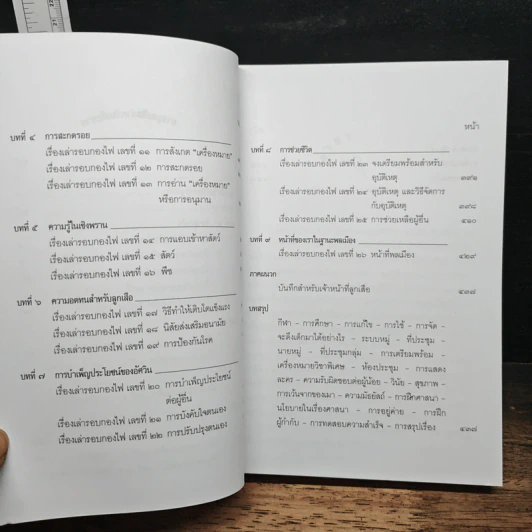 บทที่ ๔ การสะกดรอย
เรื่องเล่ารอบกองไฟ เลขที่ ๑๑ การสังเกต "เครื่องหมาย"
เรื่องเล่ารอบกองไฟ เลขที่ ๑๒ การสะกดรอย
เรื่องเล่ารอบกองไฟ เลขที่ ๑๓ การอ่าน "เครื่องหมาย"
หรือการอนุมาน
บทที่ ๕ ความรู้ในเชิงพราน
เรื่องเล่ารอบกองไฟ เลขที่ ๑๔ การแอบเข้าหาสัตว์
เรื่องเล่ารอบกองไฟ เลขที่ ๑๕ สัตว์
เรื่องเล่ารอบกองไฟ เลขที่ ๑๖ พืช
บทที่ ๖ ความอดทนสำหรับลูกเสือ
เรื่องเล่ารอบกองไฟ เลขที่ ๑๗ วิธีทำให้เติบโตแข็งแรง
เรื่องเล่ารอบกองไฟ เลขที่ ๑๘ นิสัยส่งเสริมอนามัย
เรื่องเล่ารอบกองไฟ เลขที่ ๑๙ การป้องกันโรค
บทที่ ๗ การบำเพ็ญประโยชน์ของอัศวิน
เรื่องเล่ารอบกองไฟ เลขที่ ๒๐ การบำเพ็ญประโยชน์
ต่อผู้อื่น
เรื่องเล่ารอบกองไฟ เลขที่ ๒๑ การบังคับใจตนเอง
เรื่องเล่ารอบกองไฟ เลขที่ ๒๒ การปรับปรุงตนเอง
หน้า
บทที่ ๘ การช่วยชีวิต
เรื่องเล่ารอบกองไฟ เลขที่ ๒๓ จงเตรียมพร้อมสำหรับ
อุบัติเหตุ ๓๙๑
เรื่องเล่ารอบกองไฟ เลขที่ ๒๔ อุบัติเหตุ และวิธีจัดการ
กับอุบัติเหตุ ๓๙๘
เรื่องเล่ารอบกองไฟ เลขที่ ๒๕ การช่วยเหลือผู้อื่น ๔๑๐
บทที่ ๙ หน้าที่ของเราในฐานะพลเมือง
เรื่องเล่ารอบกองไฟ เลขที่ ๒๖ หน้าที่พลเมือง ๔๒๙
ภาคผนวก
บันทึกสำหรับเจ้าหน้าที่ลูกเสือ
บทสรุป
กีฬา - การศึกษา - การแก้ไข - การใช้ - การจัด -
จะดึงเด็กมาได้อย่างไร - ระบบหมู่ - ที่ประชุม -
นายหมู่ - ที่ประชุมกลุ่ม - การเตรียมพร้อม -
เครื่องหมายวิชาพิเศษ - ห้องประชุม - การแสดง
ละคร - ความรับผิดชอบต่อผู้น้อย - วินัย - สุขภาพ -
การเว้นจากของเมา - ความมัธยัสถ์ - การฝึกศาสนา -
นโยบายในเรื่องศาสนา - การอยู่ค่าย - การฝึก
ผู้กำกับ - การทดสอบความสำเร็จ - การสรุปเรื่อง ๔๓๗